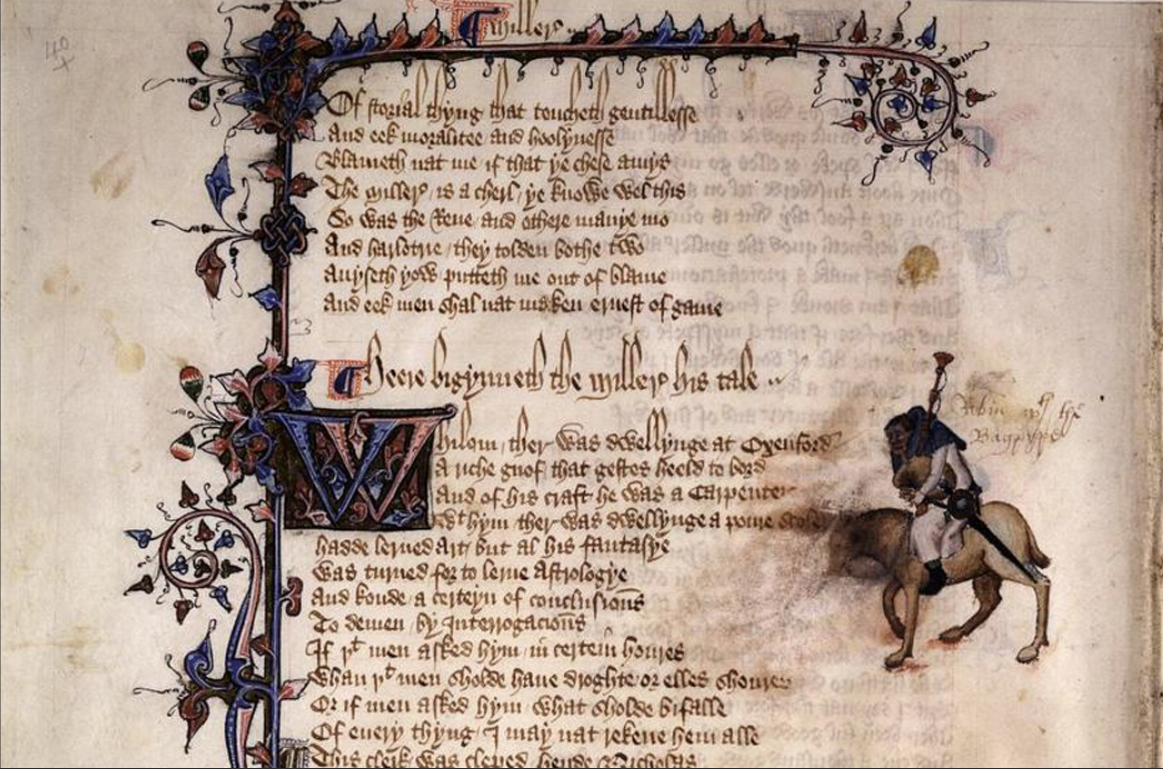 Miller
Of storial thyng that toucheth gentillesse
And eek moralitee and hoolynesse
Blameth nat me if that ye chese amys
The Miller is a cherl ye knowe wel this
So was the Reue and othere manye mo
And harlotrie they tolden bothe two
Auyseth yow putteth me out of blame
And eek men shal nat maken ernest of game
Heere bigynneth the Miller his tale
Whilom ther was dwellynge at Oxenford
A riche gnof that gestes heeld to bord
And of his craft he was a Carpenter
Wt hym ther was dwellynge a poure scoler
hadde lerned Art but al his fantasye
Was turned for to lerne Astrologye
And koude a certeyn of conclusions
To demen by Interrogacions
If þt men asked hym in certein houres
Whan þt men sholde haue droghte or elles shoures
Or if men asked hym what sholde bifalle
Of euery thyng I may nat rekene hem alle
This clerk was cleped hende Nicholas
Robin wt the
Bagpype